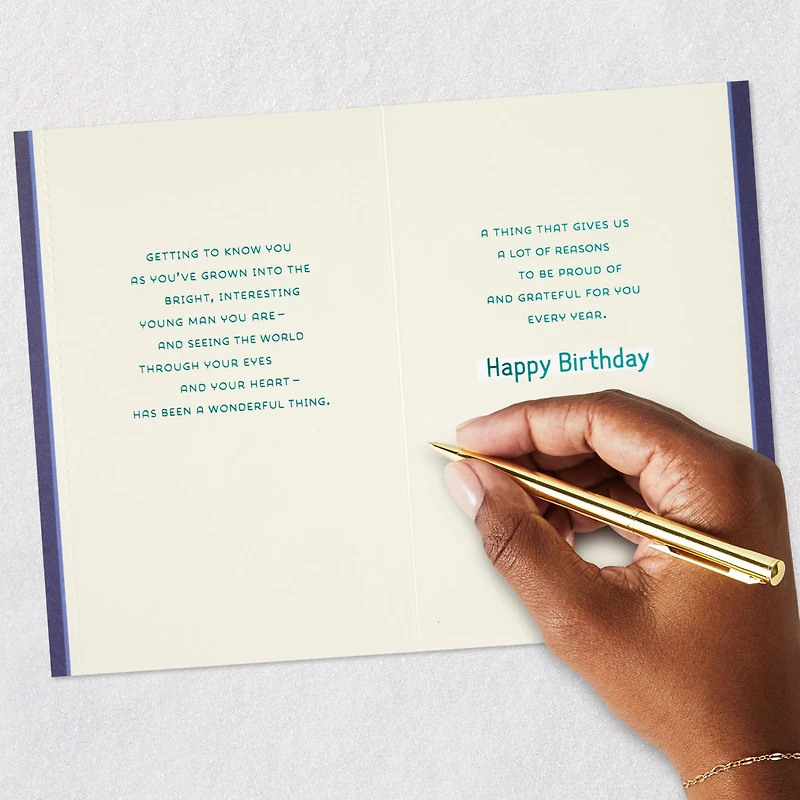 GETTING TO KNOW YOU
AS YOU'VE GROWN INTO THE
BRIGHT, INTERESTING
YOUNG MAN YOU ARE—
AND SEEING THE WORLD
THROUGH YOUR EYES
AND YOUR HEART—
HAS BEEN A WONDERFUL THING.
A THING THAT GIVES US
A LOT OF REASONS
TO BE PROUD OF
AND GRATEFUL FOR YOU
EVERY YEAR.
Happy Birthday